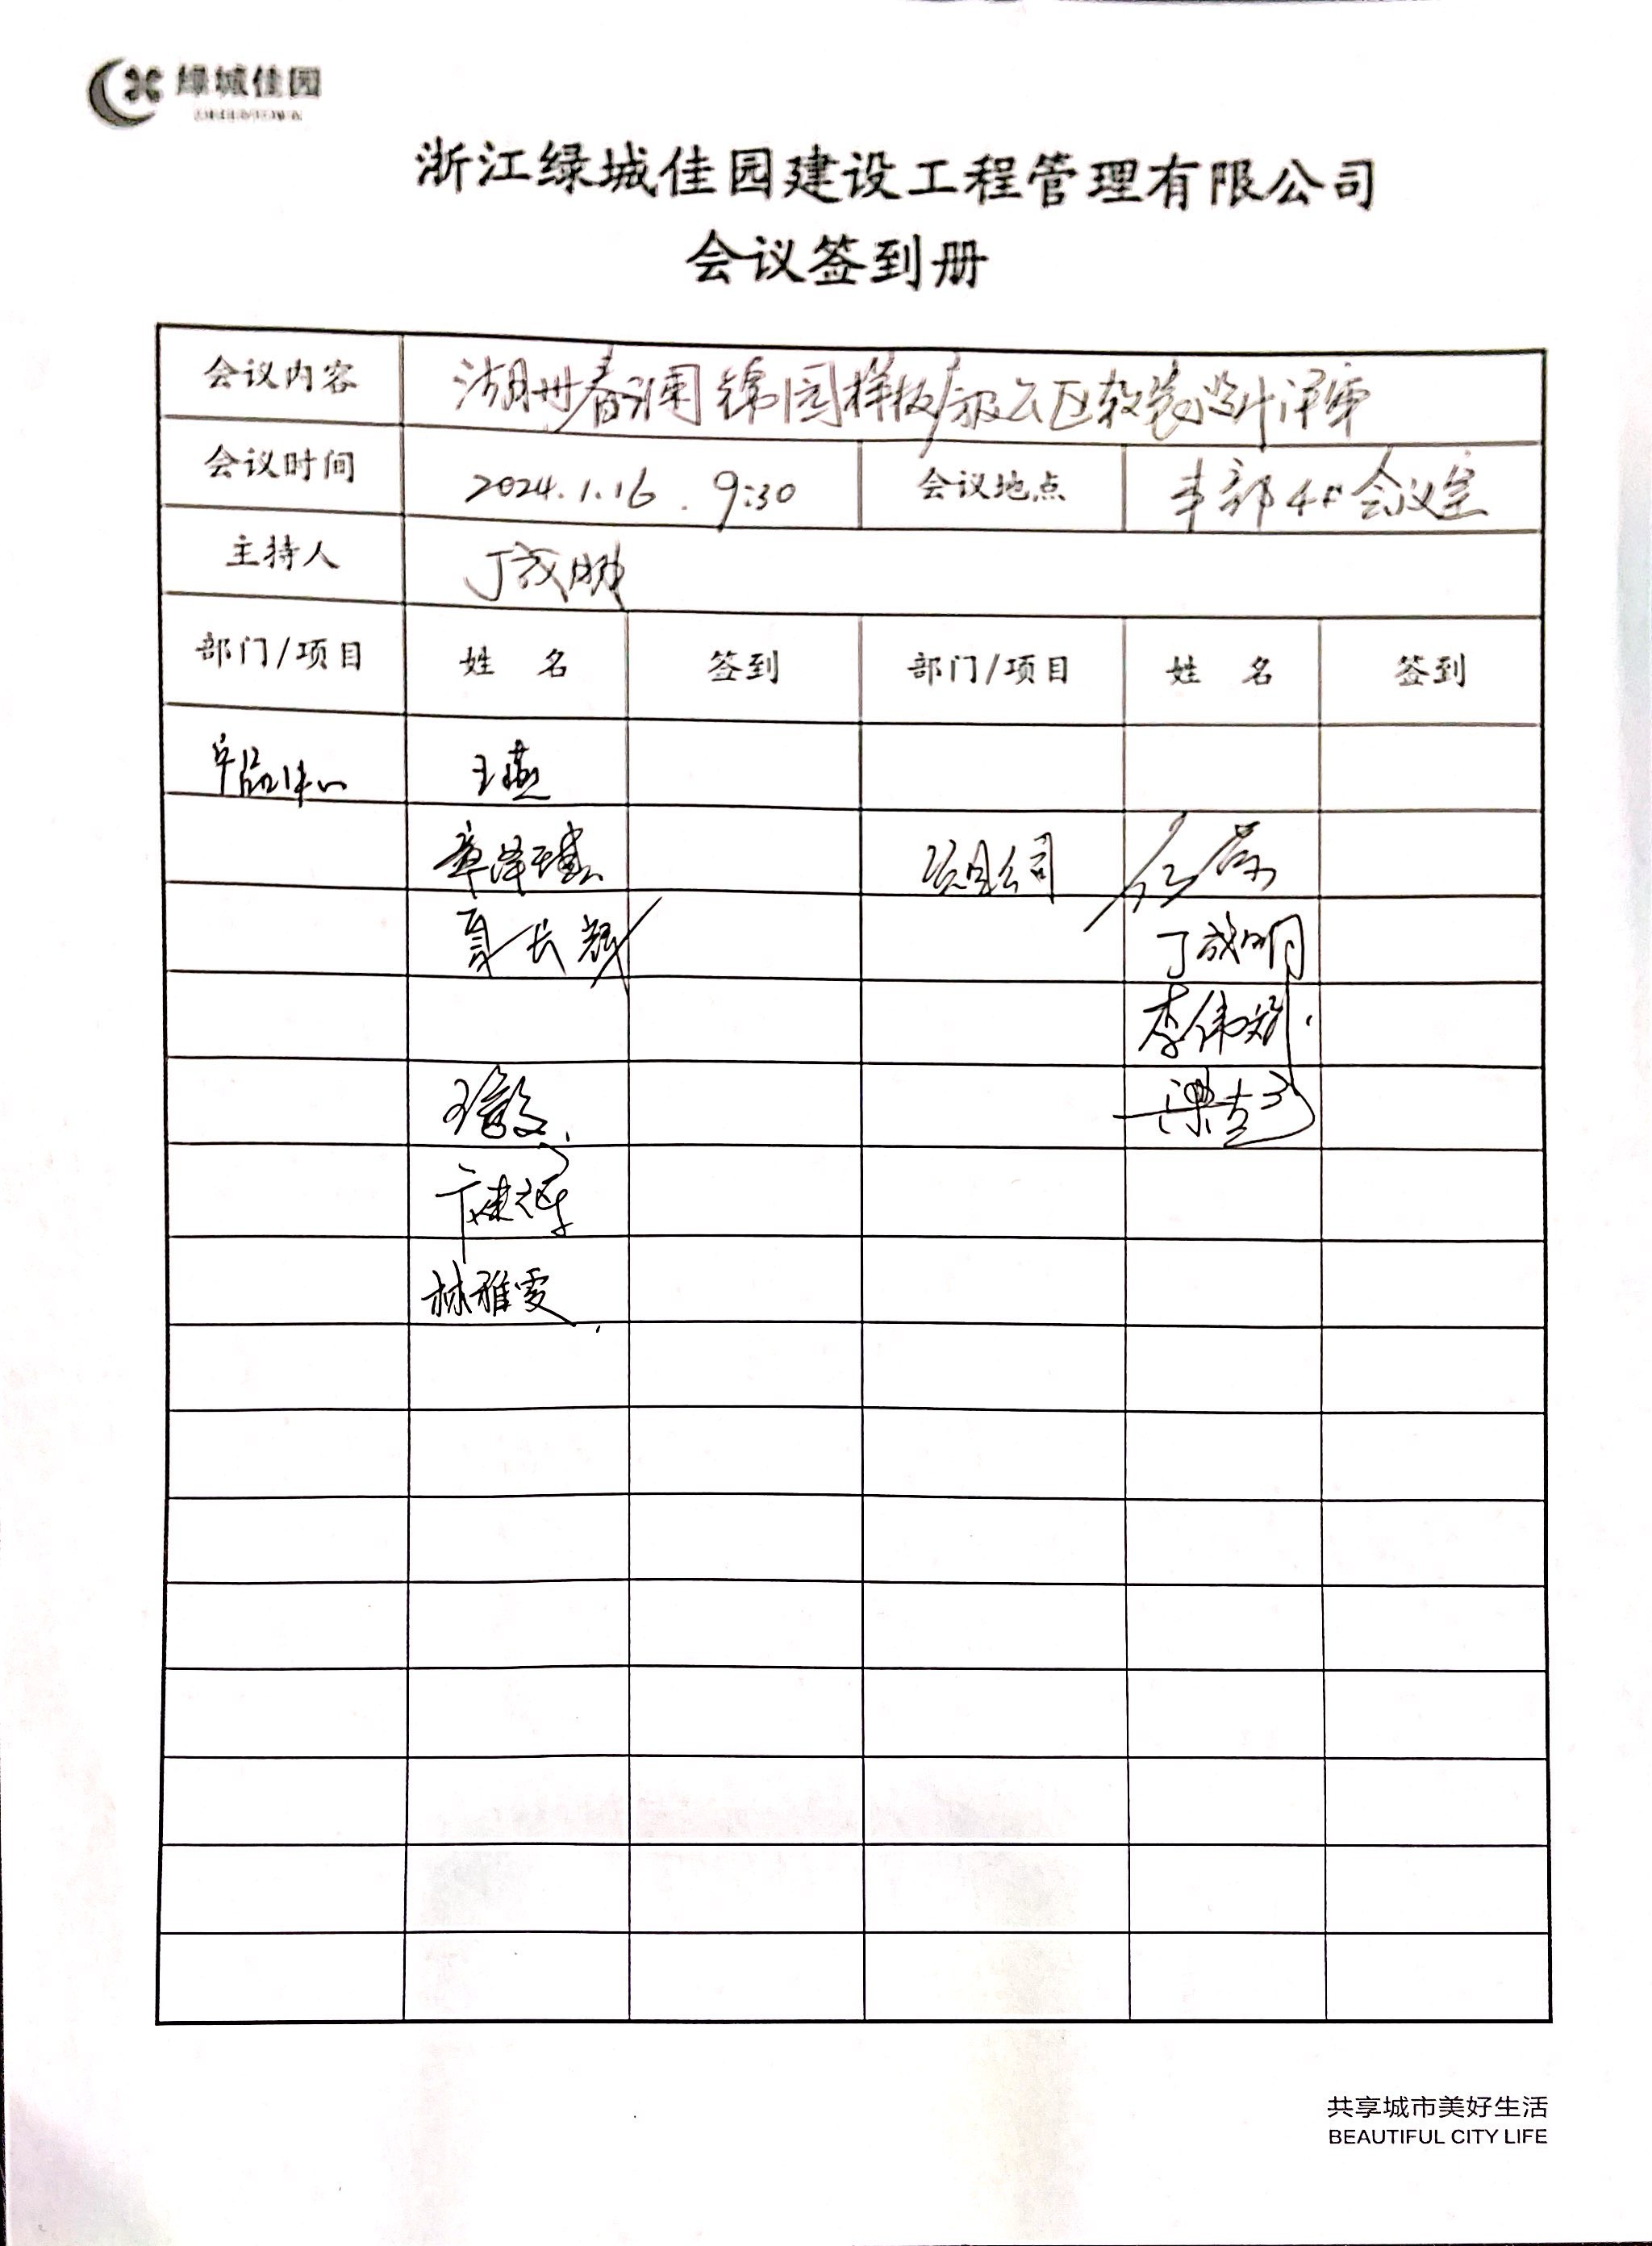 绿城佳园
浙江绿城佳园建设工程管理有限公司
会议签到册
会议内容 湖州春澜锦园样板房及公区软装设计评审
会议时间 2024.1.16. 9:30 会议地点 本部4F会议室
主持人 丁成明
部门/项目 姓 名 签到 部门/项目 姓 名 签到
产品中心 王燕
章泽 项目公司
夏长辉 丁成明
李伟
王 梁
建
林雅雯
共享城市美好生活
BEAUTIFUL CITY LIFE